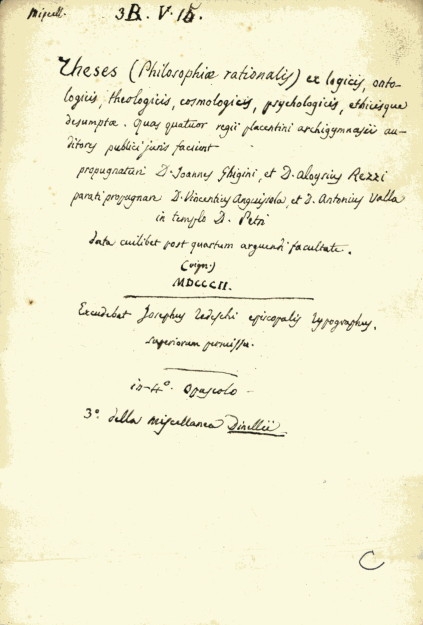 Miscell. 3B. V. 15.
Theses (Philosophiæ rationalis) ex logicis, onto-
logicis, theologicis, cosmologicis, psychologicis, ethicisque
desumptæ. Quas quatuor regii placentini archigymnasii au-
ditores publici juris faciunt
propugnaturi D. Joannes Ghigini, et D. Aloysius Rezzi
parati propugnare D. Vincentius Anguissola, et D. Antonius Valla
in templo D. Petri
data cuilibet post quartum arguendi facultate.
(vign.)
MDCCCII.
Excudebat Josephus Tedeschi episcopalis typographus.
superiorum permissu.
in-4º. Opuscolo
3º della miscellanea
C